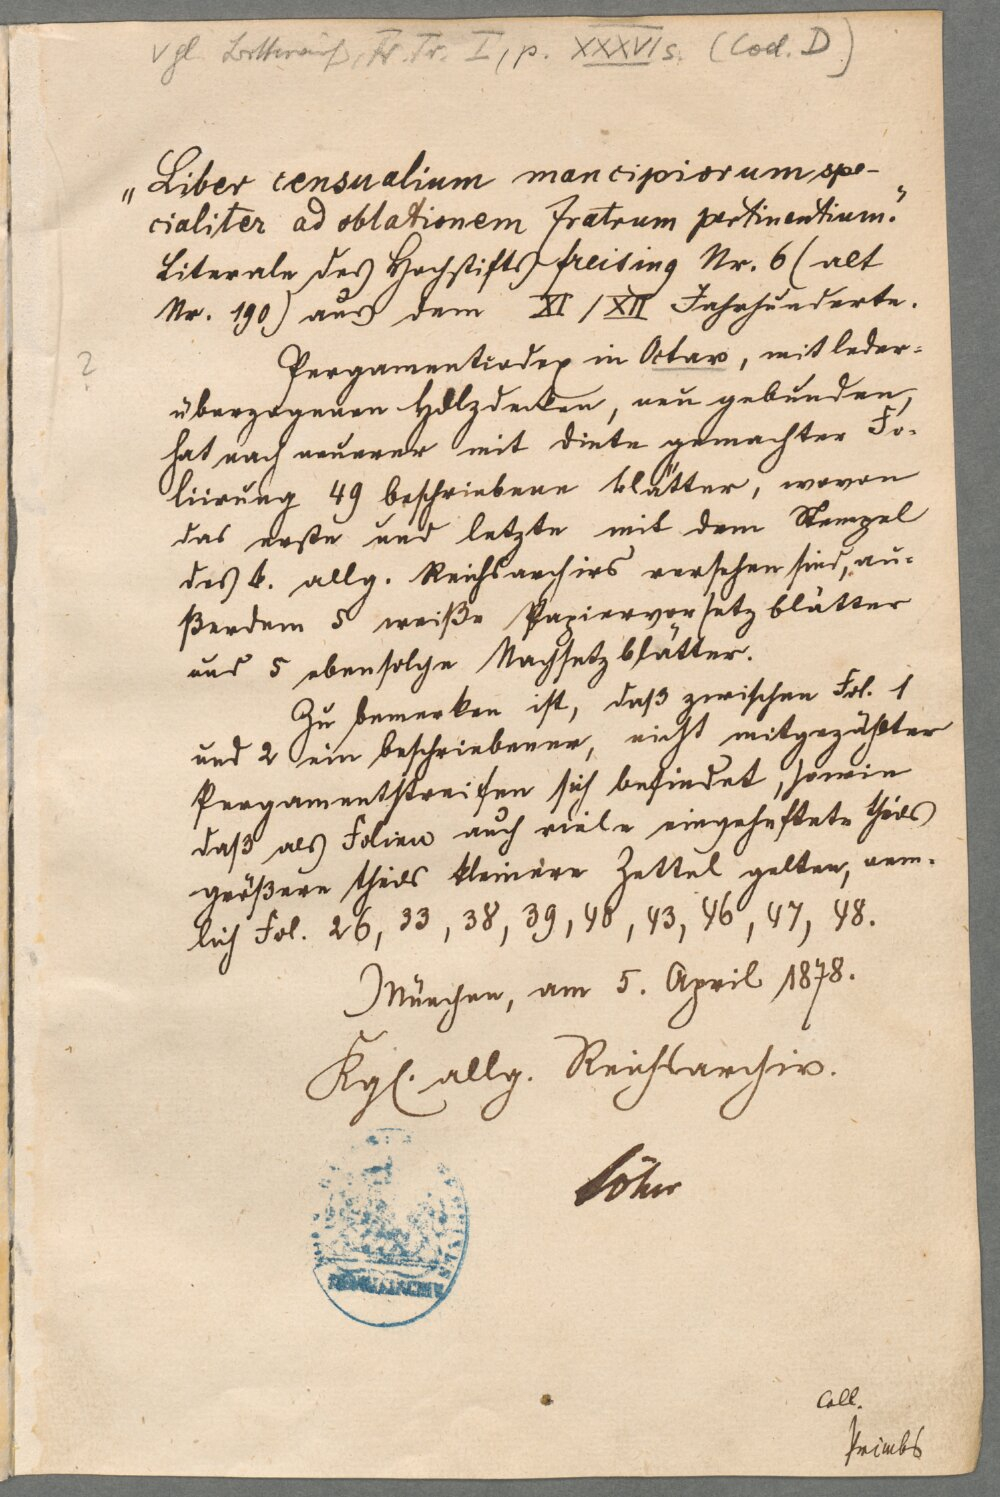 vgl. Bitterauf, Fr. Tr. I, p. XXXVI s. (Cod. D)
„Liber censualium mancipiorum spe-
cialiter ad oblationem fratrum pertinentium.“
Literale des Hochstifts Freising Nr. 6 (alt
Nr. 190) aus dem XI/XII Jahrhunderte.
?
Pergamentcodex in Octav, mit leder-
überzogenen Holzdecken, neu gebunden,
hat nach neuerer mit Dinte gemachter Fo-
liirung 49 beschriebene Blätter, wovon
das erste und letzte mit dem Stempel
des k. allg. Reichsarchivs versehen sind, au-
ßerdem 5 weiße Papiervorsetzblätter
und 5 ebensolche Nachsetzblätter.
Zu bemerken ist, daß zwischen Fol. 1
und 2 ein beschriebener, nicht mitgezählter
Pergamentstreifen sich befindet, sowie
daß als Folien auch viele eingeheftete theils
größere theils kleinere Zettel gelten, nem-
lich Fol. 26, 33, 38, 39, 40, 43, 46, 47, 48.
München, am 5. April 1878.
Kgl. allg. Reichsarchiv.
Löher
Coll.
Primbs